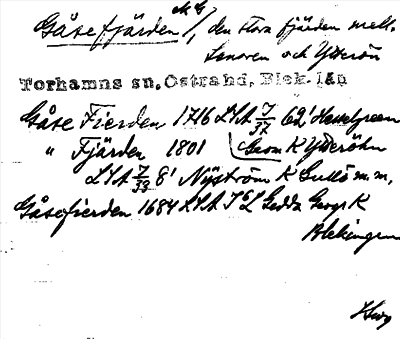 Gåsefjärden /, den stora fjärden mell.
Senoren och Ytterön
Torhamns sn, Östra hd, Blek. län
Gåse Fierden 1716 LSA 7/37 62' Hesselgreen
" Fjärden 1801 Geom K Ytteröhn
LSA 7/33 8' Nyström K m.m.
Gåsefierden 1684 LSA Gedda Geogr K
Blekingen